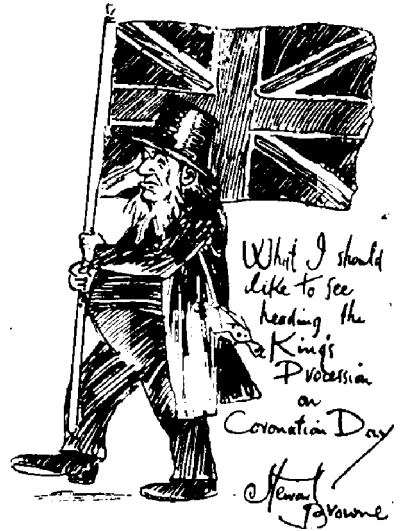 What I should
like to see
heading the
King's
Procession
on
Coronation Day
Stewart
Browne